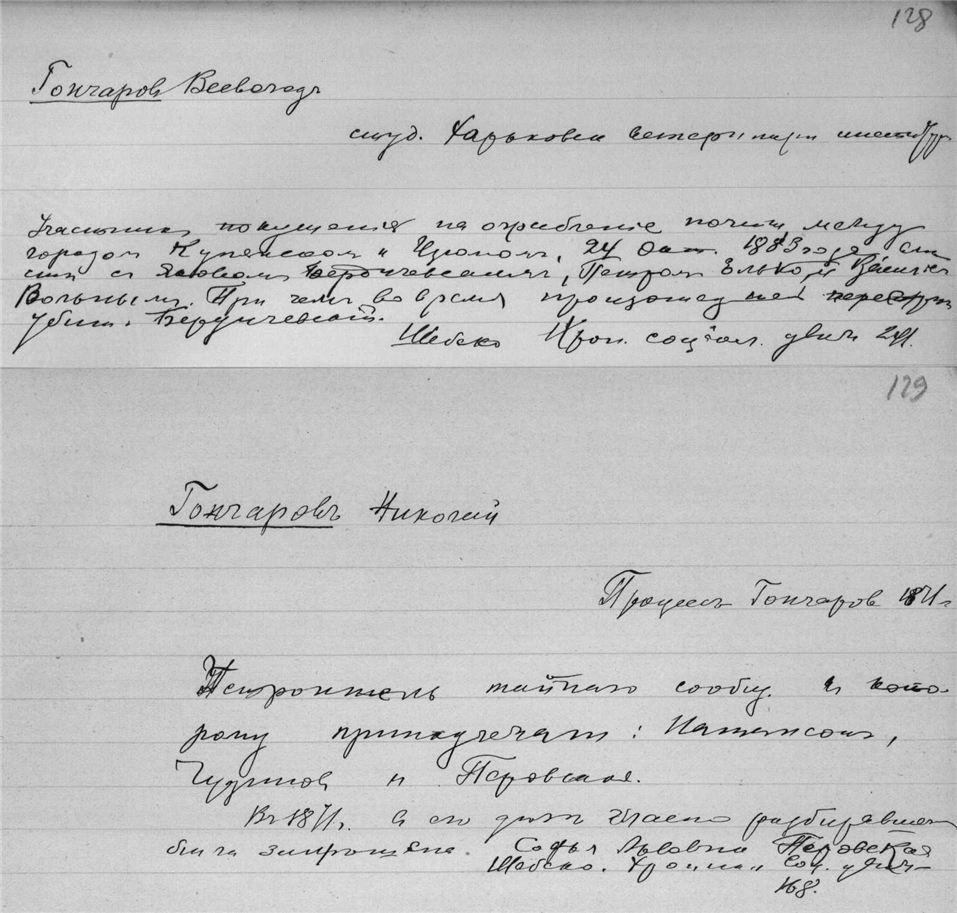 128
Гончаров Всеволодъ
студ. Харьковск ветеринарн институт
Участник покушенія на ограбленіе почты между
городом Купянском и Изюмом, 24 Окт. 1883 года
с Яковом Бердичевским, Петром Елько и Василіем
Вольным. При чем во время происшедшей перестр
убит Бердичевскій.
Шебеко Хрон. соціал. движ
129
Гончаровъ Николай
Процессъ Гончаров 1871 г
тайнаго сообщ. к кото-
рому принадлежали: Натансон,
Чудинов и Перовская.
В 1871 г. в его дѣлѣ
была запрошена. Софья Львовна Перовская
Шебеко. Хроника Соц. движ-
168.